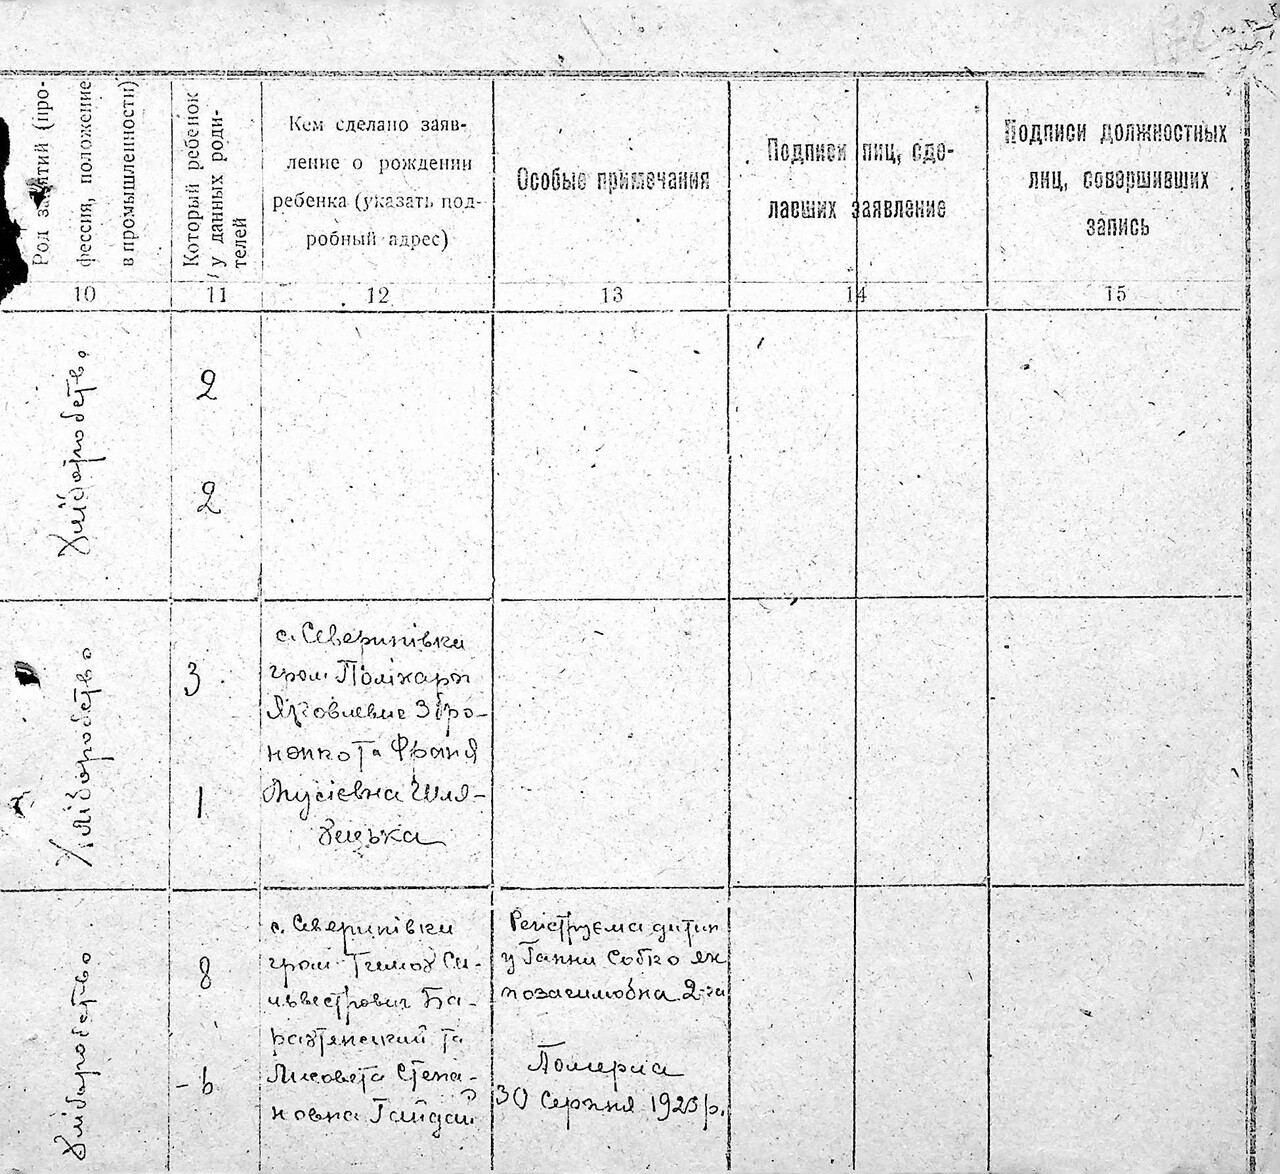 Род занятий (про-
фессия, положение
в промышленности)
Который ребенок
у данных роди-
телей
Кем сделано заяв-
ление о рождении
ребенка (указать под-
робный адрес)
Особые примечания
Подписи лиц, сде-
лавших заявление
Подписи должностных
лиц, совершивших
запись
10
11
12
13
14
15
Хліборобство
2
2
Хліборобство
3
1
с. Северинівки
гром Полікарп
Яковлевич Збро-
женко та Франя
Мусієвна Шля-
хицька
Хліборобство
8
6
с. Северинівки
гром. Тимох Си-
львестрович Ба-
та
Лисовета Степа-
новна Гайдай
Регіструєма дитин
у Ганни Собко як
позашлюбна 2-га
Померла
30 Серпня 1923 р.